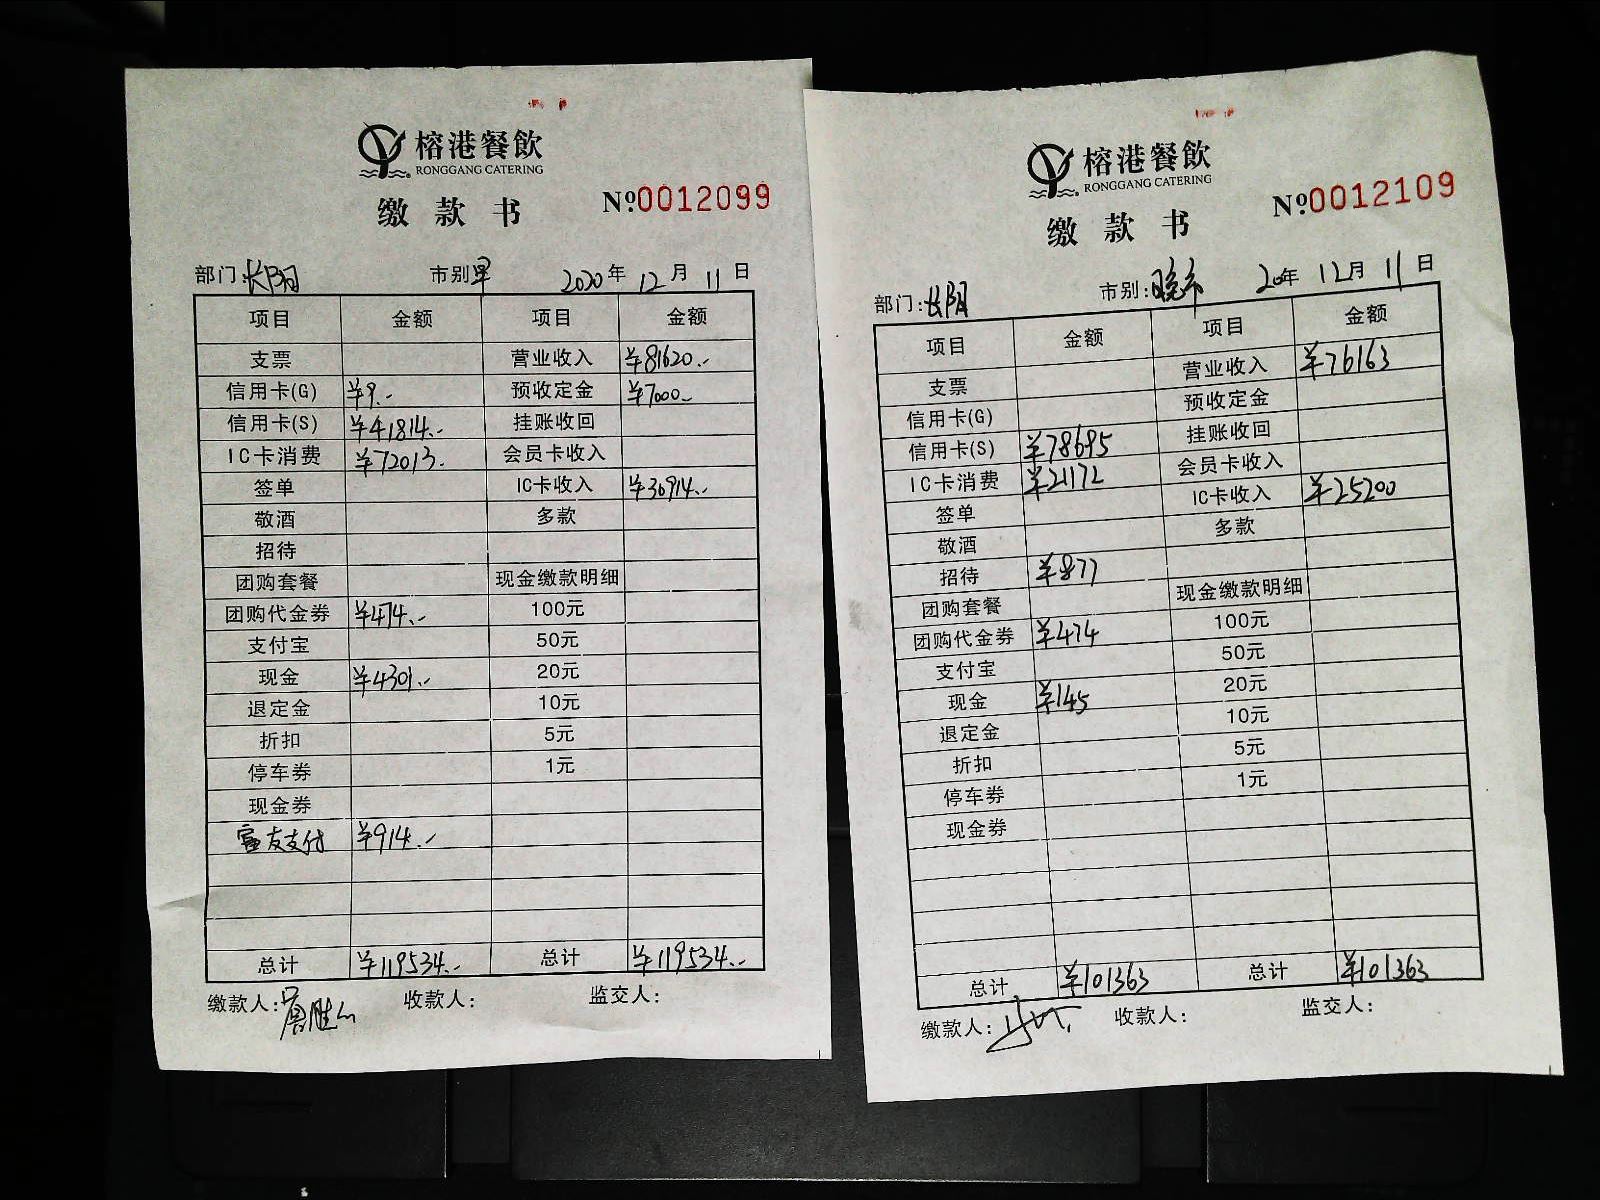 榕港餐飲
RONGGANG CATERING
缴款书
Nº 0012099
部门:长阳 市别早 2020年12月11日
项目 金额 项目 金额
支票 营业收入 ¥81620.-
信用卡(G) ¥9.- 预收定金 ¥7000-
信用卡(S) ¥41814.- 挂账收回
IC卡消费 ¥72013. 会员卡收入
签单 IC卡收入 ¥30914.-
敬酒 多款
招待
团购套餐 现金缴款明细
团购代金券 ¥474.- 100元
支付宝 50元
现金 ¥4301.- 20元
退定金 10元
折扣 5元
停车券 1元
现金券
富友支付 ¥914.-
总计 ¥119534.- 总计 ¥119534.-
缴款人: 收款人: 监交人:
榕港餐飲
RONGGANG CATERING
缴款书
Nº 0012109
部门:长阳 市别:晚市 20年12月11日
项目 金额 项目 金额
支票 营业收入 ¥76163
信用卡(G) 预收定金
信用卡(S) ¥78695 挂账收回
IC卡消费 ¥21172 会员卡收入
签单 IC卡收入 ¥25200
敬酒 多款
招待 ¥877
团购套餐 现金缴款明细
团购代金券 ¥474 100元
支付宝 50元
现金 ¥145 20元
退定金 10元
折扣 5元
停车券 1元
现金券
总计 ¥101363 总计 ¥101363
缴款人: 收款人: 监交人: